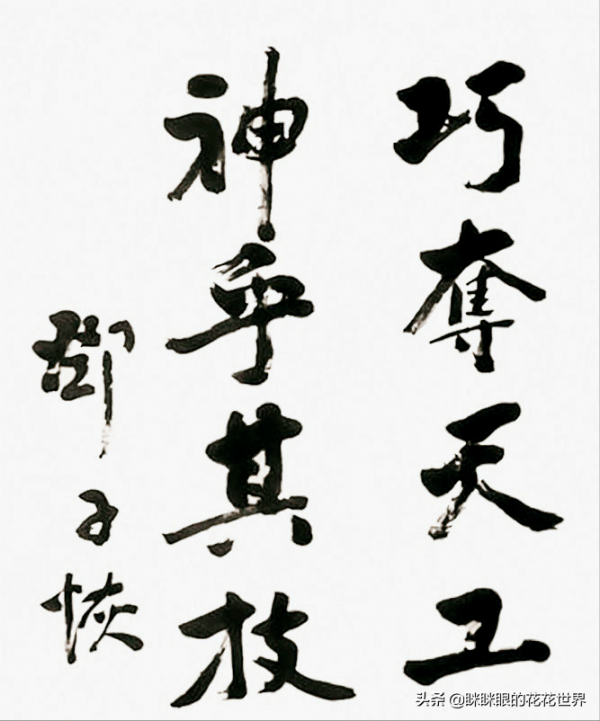 巧奪天工
神乎其技
鄧子恢
头条 @眯眯眼的花花世界